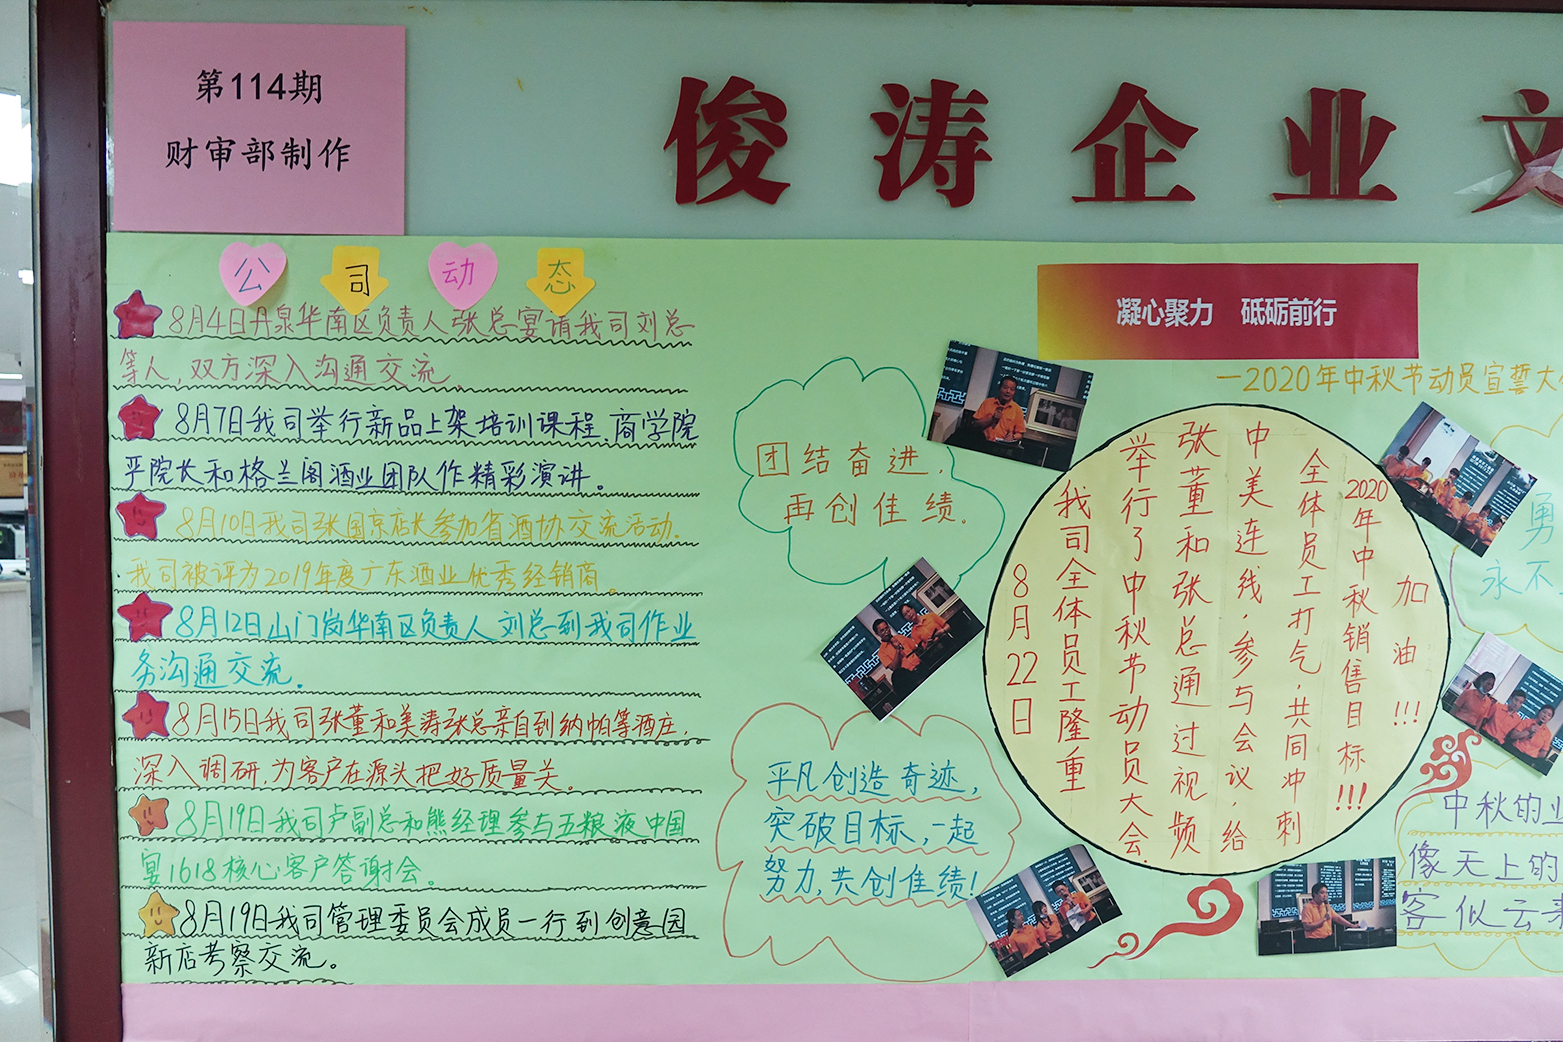 第114期
财审部制作
俊涛企业文
公司动态
8月4日丹泉华南区负责人张总宴请我司刘总
等人,双方深入沟通交流.
8月7日我司举行新品上架培训课程,商学院
平院长和格兰阁酒业团队作精彩演讲。
8月10日我司张国京店长参加省酒协交流活动.
我司被评为2019年度广东酒业优秀经销商.
8月12日山门岗华南区负责人刘总到我司作业
务沟通交流.
8月15日我司张董和美涛张总亲自到纳帕等酒庄.
深入调研.为客户在源头把好质量关。
8月19日我司卢副总和熊经理参与五粮液中国
宴1618核心客户答谢会。
8月19日我司管理委员会成员一行到创意园
新店考察交流。
凝心聚力 砥砺前行
—2020年中秋节动员宣誓大
团结奋进,
再创佳绩.
平凡创造奇迹,
突破目标,一起
努力,共创佳绩!
8月22日
我司全体员工隆重
举行了中秋节动员大会.
张董和张总通过视频
中美连线,参与会议,给
全体员工打气,共同冲刺
2020年中秋销售目标!!!
加油!!!
勇
永不
中秋的业
像天上的
客似云来